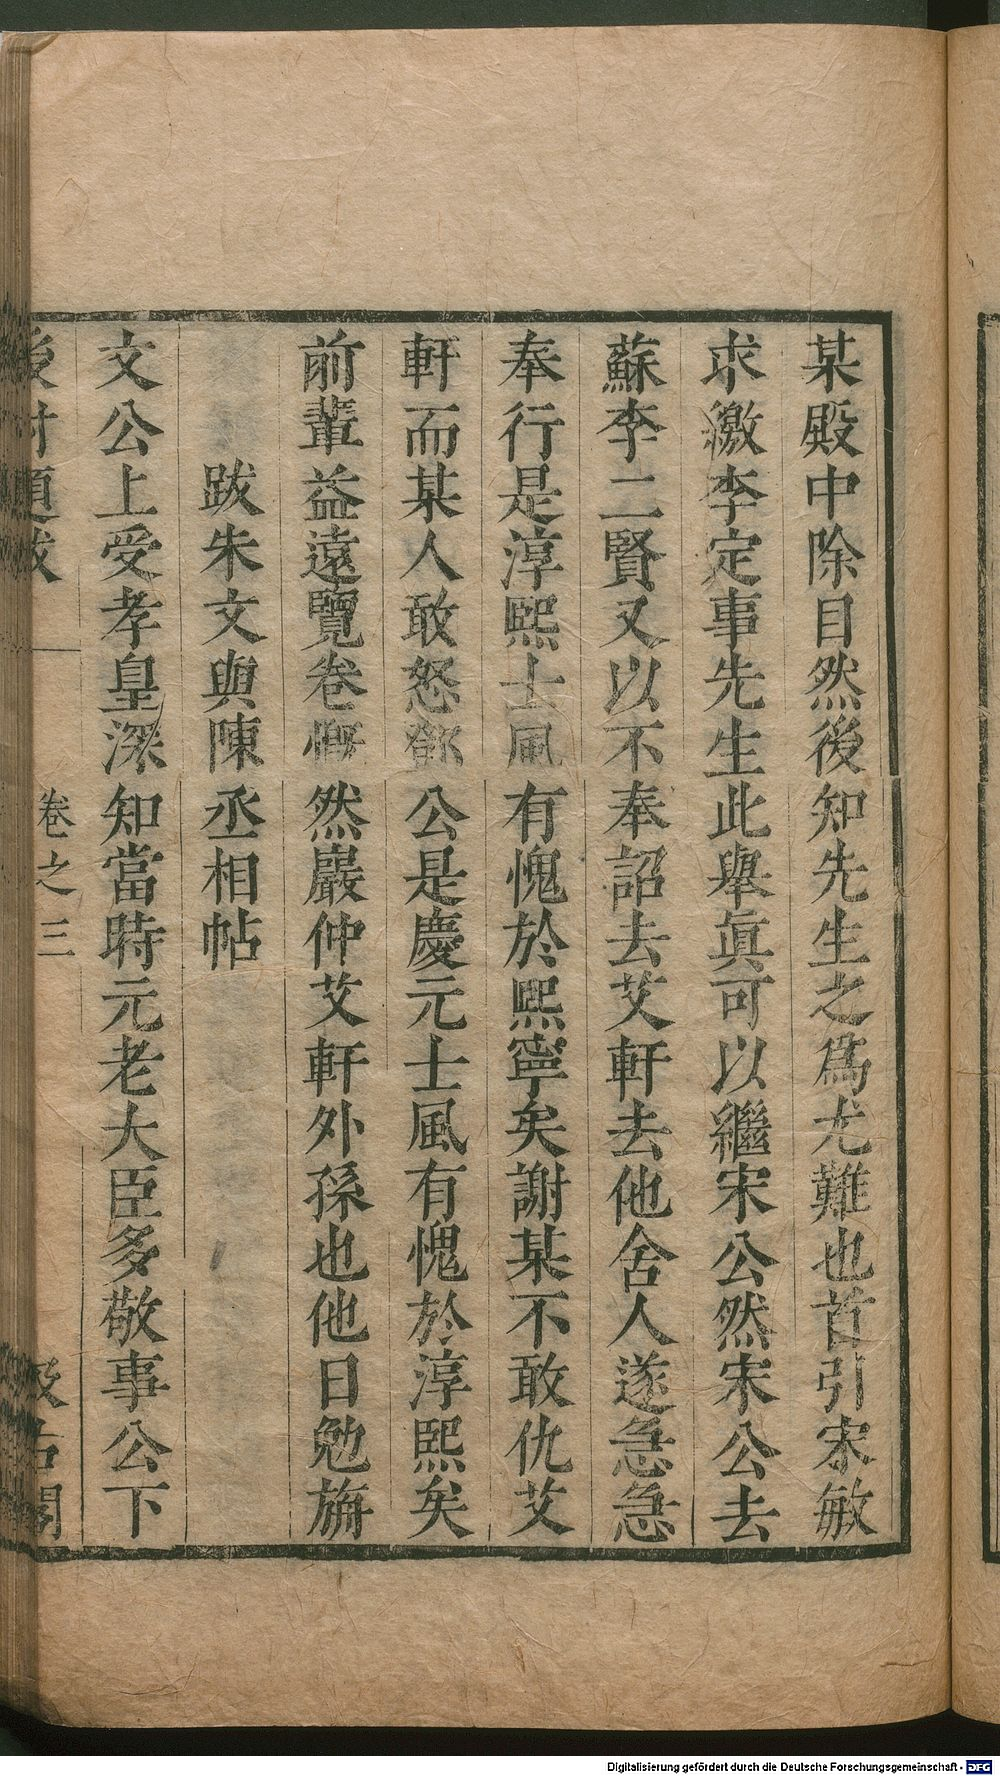 某殿中除目然後知先生之爲尤難也首引宋敏
求繳李定事先生此舉眞可以繼宋公然宋公去
蘇李二賢又以不奉詔去艾軒去他舍人遂急急
奉行是淳熙士風有愧於熙寧矣謝某不敢仇艾
軒而某人敢怒鄧公是慶元士風有愧於淳熙矣
前輩益遠覽卷慨然嚴仲艾軒外孫也他日勉旃
跋朱文與陳丞相帖
文公上受孝皇深知當時元老大臣多敬事公下
後村題跋 卷之三 汲古閣
Digitalisierung gefördert durch die Deutsche Forschungsgemeinschaft - DFG